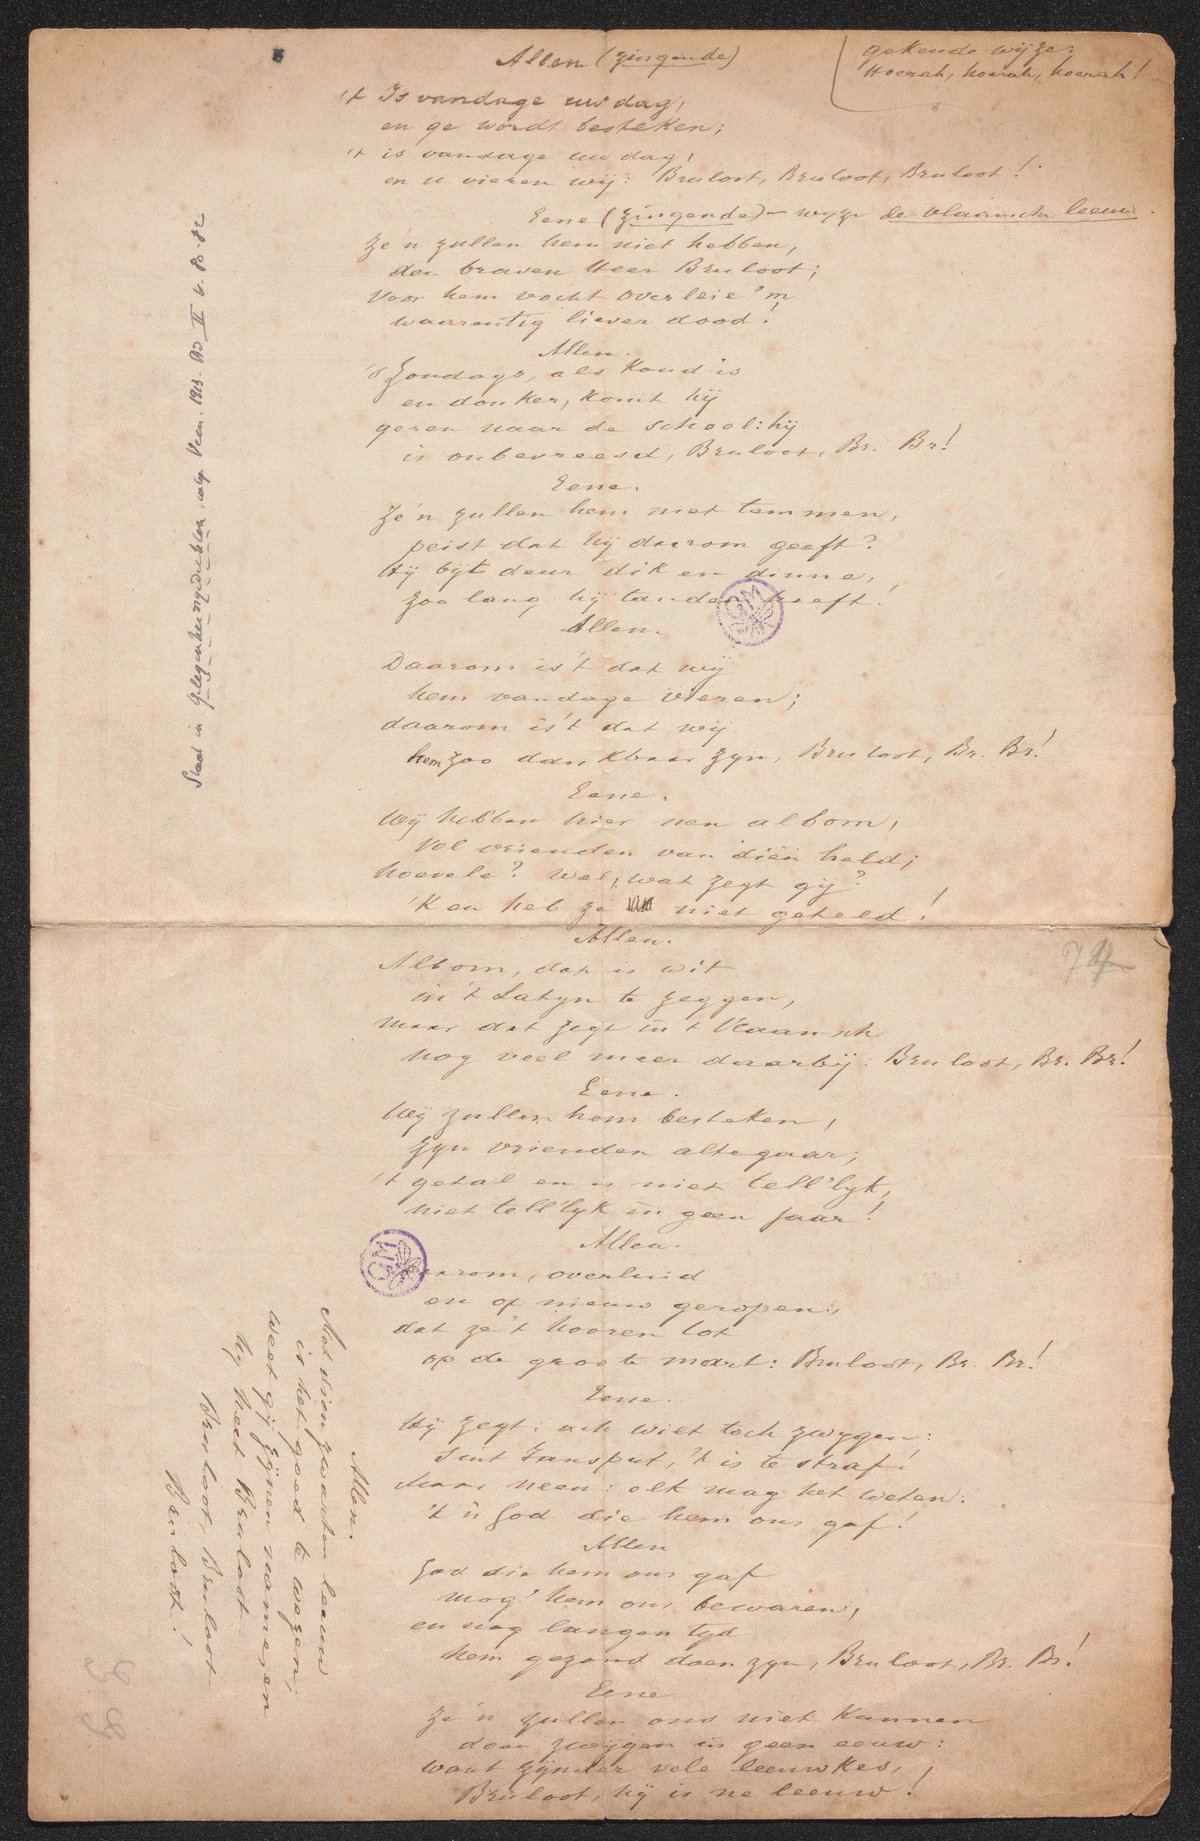 Allen (zingende)
gekende wijze:
Hoerah, hoerah, hoerah!
't Is vandage uw dag,
en ge wordt besteken;
't is vandage uw dag,
en u vieren wij: Bruloot, Bruloot, Bruloot!
Eene (zingende) - wyze de vlaamsche leeuw.
Ze'n zullen hem niet hebben,
den braven Heer Bruloot;
Voor hem vocht overleie 'm
waarentig liever dood!
Allen.
's Zondags, als 't koud is
en donker, komt hij
geren naar de school: hij
is onbevreesd, Bruloot, Br. Br!
Eene.
Ze'n zullen hem niet temmen,
peist dat hij daarom geeft?
Hij bijt deur dik en dinne,
zoo lang hij tanden heeft!
Allen.
Daarom is 't dat wij
hem vandage vieren;
daarom is 't dat wij
hem zoo dankbaar zyn, Bruloot, Br. Br!
Eene.
Wij hebben hier nen albom,
Vol vrienden van dien held;
hoevele? Wel, wat zegt gij?
'K en heb ze niet geteld!
Allen.
Albom, dat is wit
in 't Latyn te zeggen,
maar dat zegt in 't Vlaamsch
nog veel meer daarbij: Bruloot, Br. Br!
Eene.
Wij zullen hem besteken,
zyn vrienden altegaar;
't getal en is niet tell'lyk,
niet tell'lyk in geen jaar!
Allen.
Daarom, overluid
en op nieuw geropen,
dat ze 't hooren tot
op de groote mart: Bruloot, Br. Br!
Eene.
Hij zegt: ach wilt toch zwygen:
Sint Jansput, 't is te straf!
Maar neen: elk mag het weten:
't is God die hem ons gaf!
Allen
God die hem ons gaf
mog' hem ons bewaren,
en nog langen tyd
hem gezond doen zyn, Bruloot, Br. Br!
Eene
Ze'n zullen ons niet kunnen
doen zwijgen in geen eeuw:
want zijnder vele leeuwkes,
Bruloot, hij is ne leeuw!
Allen.
Met dien zwarten leeuw
is het goed te wezen;
weet gij zijnen name, en
hij heet Bruloot.
Bruloot, Bruloot
Bruloot!
Staat in Gelegenheidsgedichten, volg. Veen. 1913. BD II b. 80-82
74
GM
GM